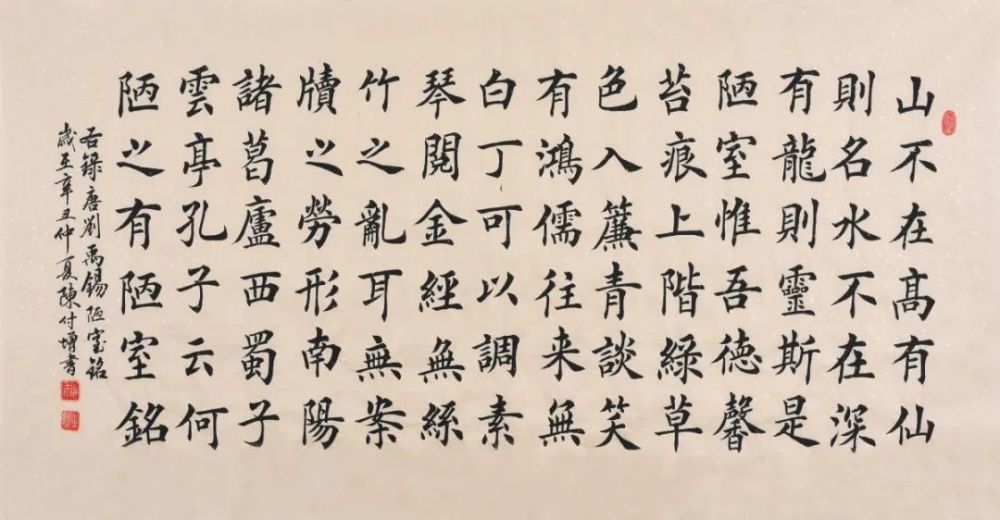 山不在髙有仙
則名水不在深
有龍則靈斯是
陋室惟吾德馨
苔痕上階緑草
色入簾青談笑
有鴻儒往来無
白丁可以調素
琴閲金經無絲
竹之亂耳無案
牘之勞形南陽
諸葛廬西蜀子
雲亭孔子云何
陋之有陋室銘
右錄唐劉禹錫陋室銘
歲在辛丑仲夏陳付增書